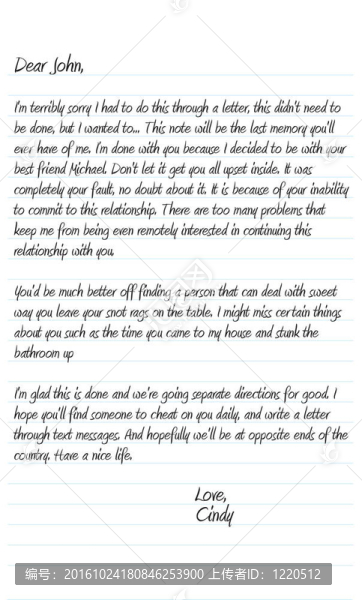 Dear John,
I'm terribly sorry I had to do this through a letter, this didn't need to
be done, but I wanted to... This note will be the last memory you'll
ever have of me. I'm done with you because I decided to be with your
best friend Michael. Don't let it get you all upset inside. It was
completely your fault, no doubt about it. It is because of your inability
to commit to this relationship. There are too many problems that
keep me from being even remotely interested in continuing this
relationship with you,
You'd be much better off finding a person that can deal with sweet
way you leave your snot rags on the table. I might miss certain things
about you such as the time you came to my house and stunk the
bathroom up
I'm glad this is done and we're going separate directions for good. I
hope you'll find someone to cheat on you daily, and write a letter
through text messages. And hopefully we'll be at opposite ends of the
country. Have a nice life.
Love,
Cindy
编号：20161024180846253900 上传者ID：1220512